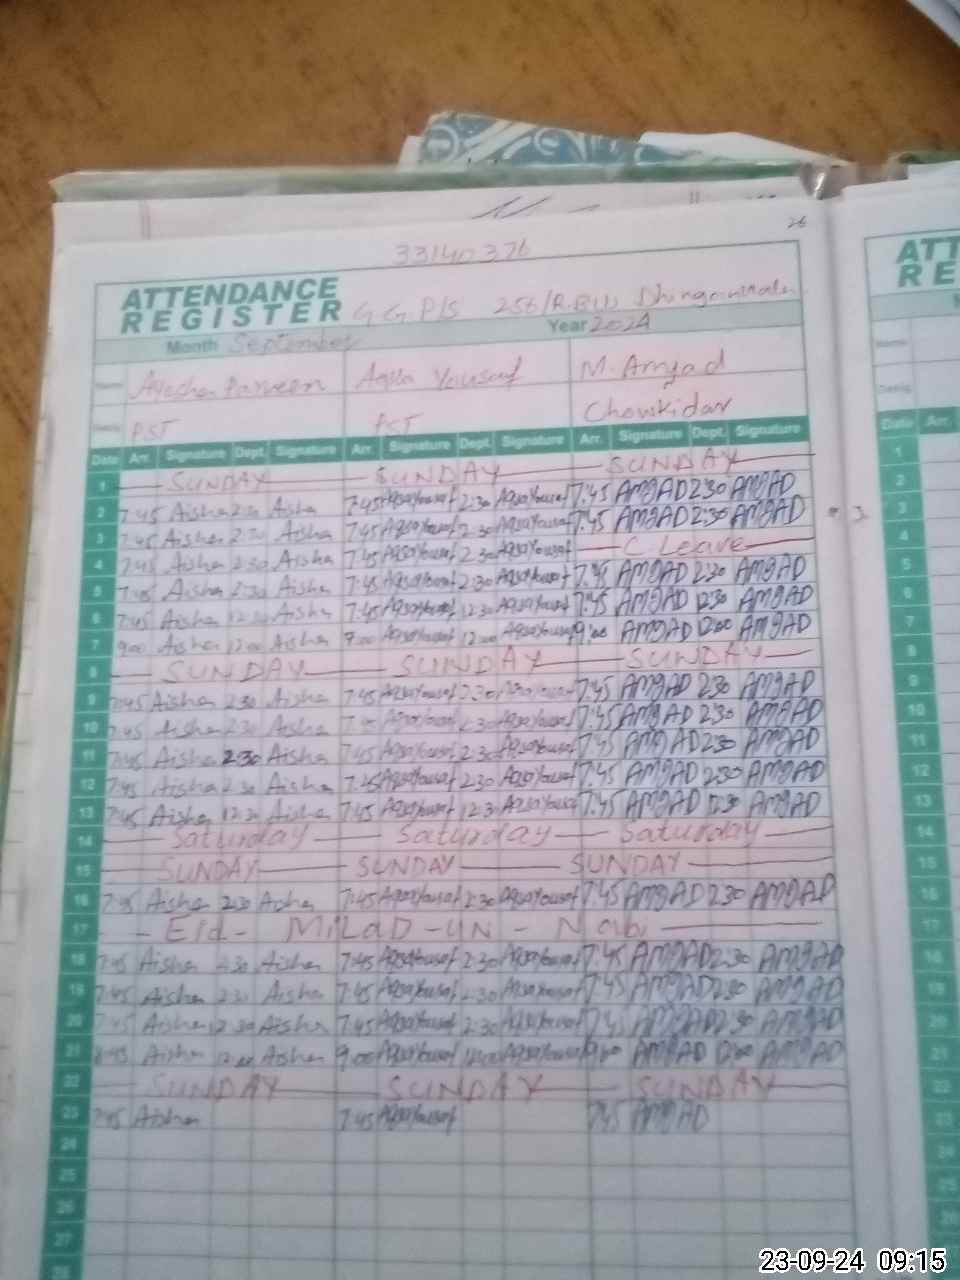 26
33140376
ATTENDANCE
REGISTER G.G.P/S 256/R.B
Month September Year 2024
Name Ayesha Parveen Aqsa Yousaf M. Amjad
PST PST Chowkidar
Date Arr. Signature Dept. Signature Arr. Signature Dept. Signature Arr. Signature Dept. Signature
1 SUNDAY SUNDAY SUNDAY
2 7:45 Aisha 2:30 Aisha 7:45 AqsaYousaf 2:30 AqsaYousaf 7:45 AMJAD 2:30 AMJAD
3 7:45 Aisha 2:30 Aisha 7:45 AqsaYousaf 2:30 AqsaYousaf 7:45 AMJAD 2:30 AMJAD
4 7:45 Aisha 2:30 Aisha 7:45 AqsaYousaf 2:30 AqsaYousaf C. Leave
5 7:45 Aisha 2:30 Aisha 7:45 AqsaYousaf 2:30 AqsaYousaf 7:45 AMJAD 2:30 AMJAD
6 7:45 Aisha 12:30 Aisha 7:45 AqsaYousaf 12:30 AqsaYousaf 7:45 AMJAD 12:30 AMJAD
7 9:00 Aisha 12:00 Aisha 9:00 AqsaYousaf 12:00 AqsaYousaf 9:00 AMJAD 12:00 AMJAD
8 SUNDAY SUNDAY SUNDAY
9 7:45 Aisha 2:30 Aisha 7:45 AqsaYousaf 2:30 AqsaYousaf 7:45 AMJAD 2:30 AMJAD
10 7:45 Aisha 2:30 Aisha 7:45 AqsaYousaf 2:30 AqsaYousaf 7:45 AMJAD 2:30 AMJAD
11 7:45 Aisha 2:30 Aisha 7:45 AqsaYousaf 2:30 AqsaYousaf 7:45 AMJAD 2:30 AMJAD
12 7:45 Aisha 2:30 Aisha 7:45 AqsaYousaf 2:30 AqsaYousaf 7:45 AMJAD 2:30 AMJAD
13 7:45 Aisha 12:30 Aisha 7:45 AqsaYousaf 12:30 AqsaYousaf 7:45 AMJAD 12:30 AMJAD
14 Saturday Saturday Saturday
15 SUNDAY SUNDAY SUNDAY
16 7:45 Aisha 2:30 Aisha 7:45 AqsaYousaf 2:30 AqsaYousaf 7:45 AMJAD 2:30 AMJAD
17 - Eid - MiLaD - un - Nabi
18 7:45 Aisha 2:30 Aisha 7:45 AqsaYousaf 2:30 AqsaYousaf 7:45 AMJAD 2:30 AMJAD
19 7:45 Aisha 2:30 Aisha 7:45 AqsaYousaf 2:30 AqsaYousaf 7:45 AMJAD 2:30 AMJAD
20 7:45 Aisha 12:30 Aisha 7:45 AqsaYousaf 2:30 AqsaYousaf 7:45 AMJAD 2:30 AMJAD
21 8:45 Aisha 12:00 Aisha 9:00 AqsaYousaf 12:00 AqsaYousaf 9:00 AMJAD 12:00 AMJAD
22 SUNDAY SUNDAY SUNDAY
23 7:45 Aisha 7:45 AqsaYousaf 7:45 AMJAD
24
25
26
27
28
ATT
RE
Date Arr.
1
2
3
4
5
6
7
8
9
10
11
12
13
14
15
16
17
18
19
20
21
22
23
24
25
26
23-09-24 09:15